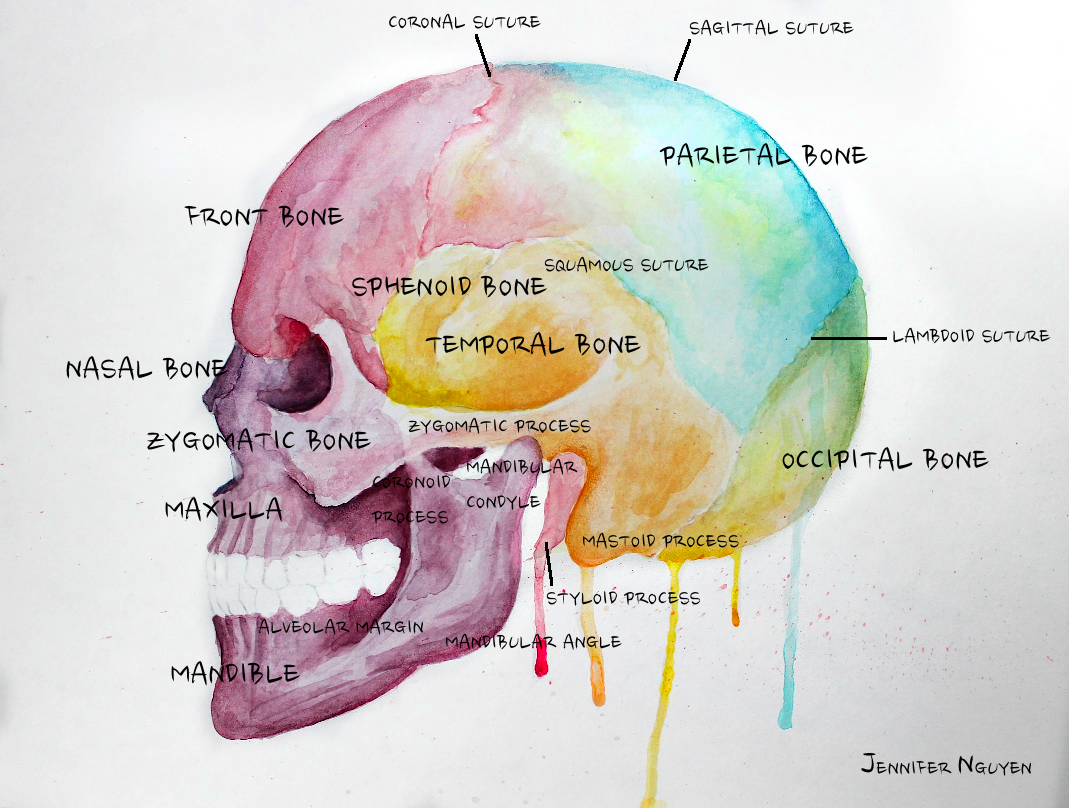 CORONAL SUTURE
SAGITTAL SUTURE
PARIETAL BONE
FRONT BONE
SQUAMOUS SUTURE
SPHENOID BONE
LAMBDOID SUTURE
TEMPORAL BONE
NASAL BONE
ZYGOMATIC PROCESS
ZYGOMATIC BONE
OCCIPITAL BONE
MANDIBULAR
CONDYLE
CORONOID
PROCESS
MAXILLA
MASTOID PROCESS
STYLOID PROCESS
ALVEOLAR MARGIN
MANDIBULAR ANGLE
MANDIBLE
JENNIFER NGUYEN